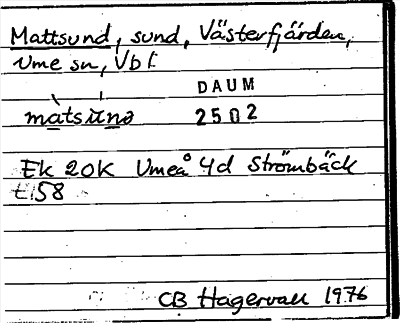 Mattsund, sund, Västerfjärden,
Ume sn, Vbt.
DAUM
matsund 2502
Ek 20K Umeå 4d Strömbäck
t.58
CB Hagervall 1976